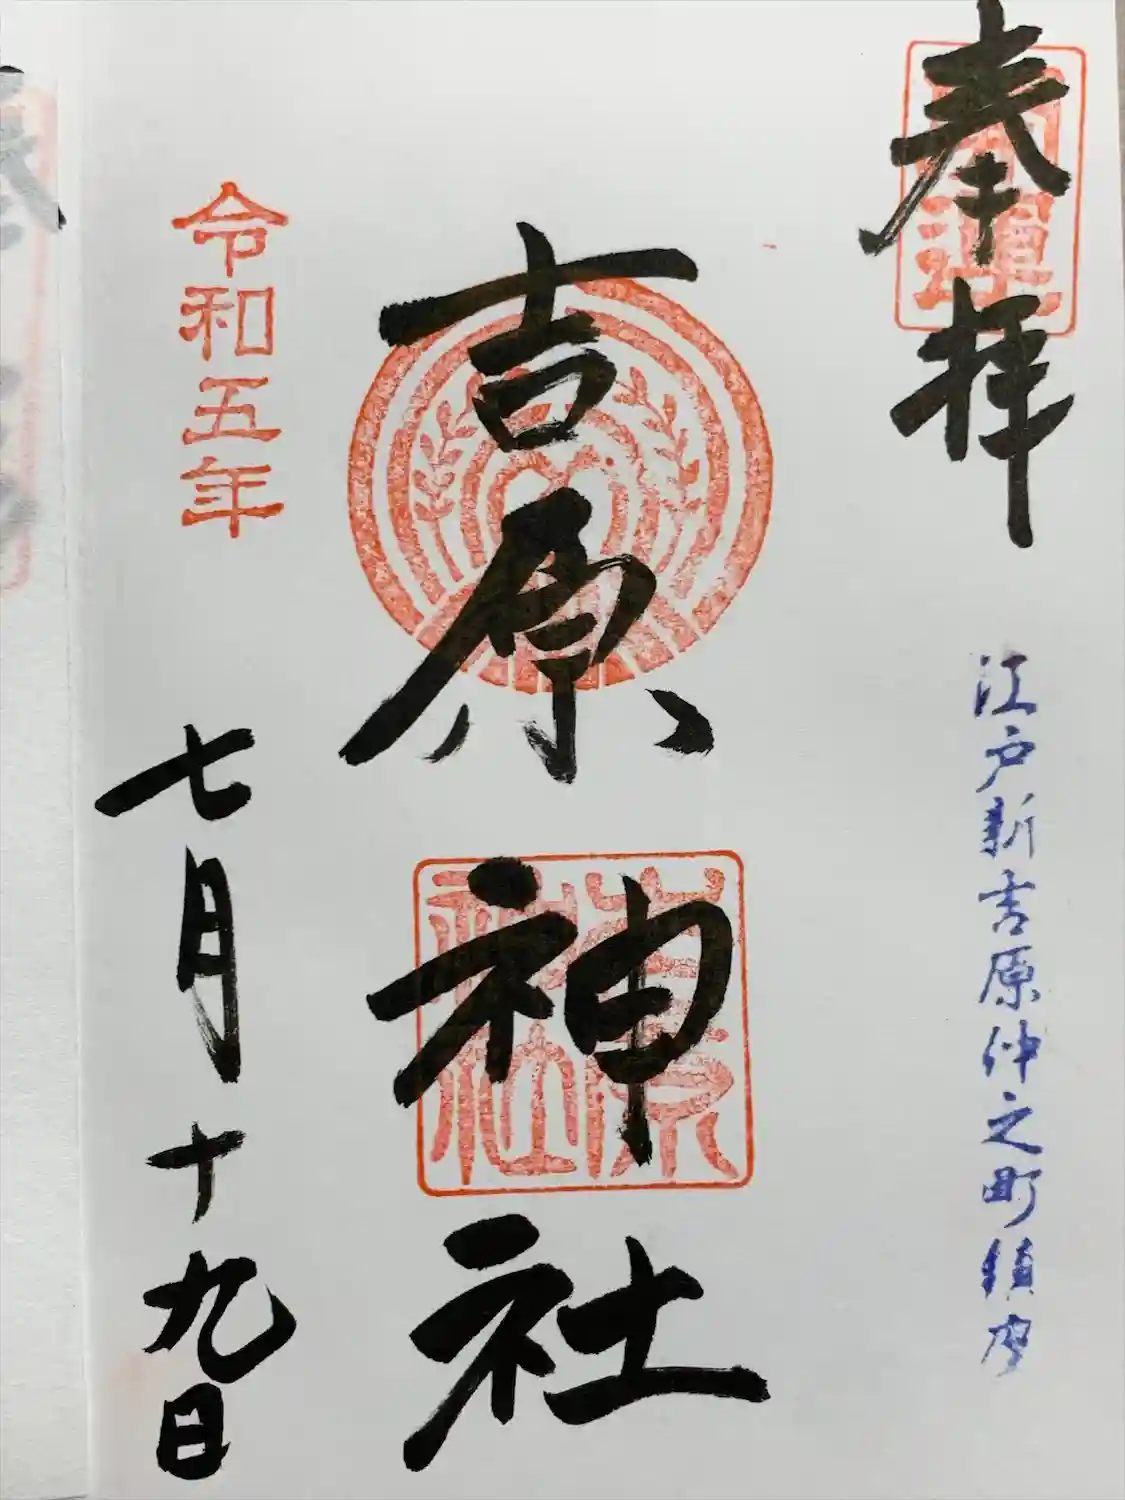 奉拝
開運
江戸新吉原仲之町鎮守
吉原神社
吉原
神社
令和五年
七月十九日